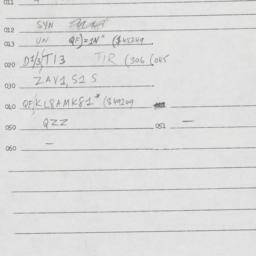 011
012 SYN
013 UN QF)=1N" ($48249
020 D1/3/TI3 TIR (306 (045
030 ZAV1, S1 S
040 QF/KL8AMK81" ($49249
050 QZZ 051 —
060 —